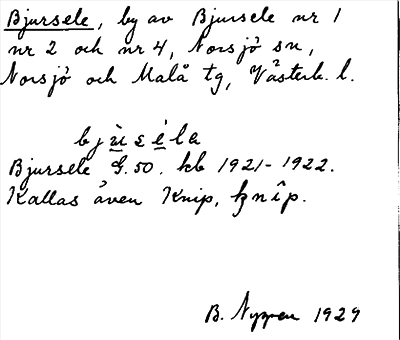 Bjursele, by av Bjursele nr 1
nr 2 och nr 4, Norsjö sn,
Norsjö och Malå tg, Västerb. l.
bjùséla
Bjursele G.50. kb 1921-1922.
Kallas även Knip, knîp.
B. Nyman 1929